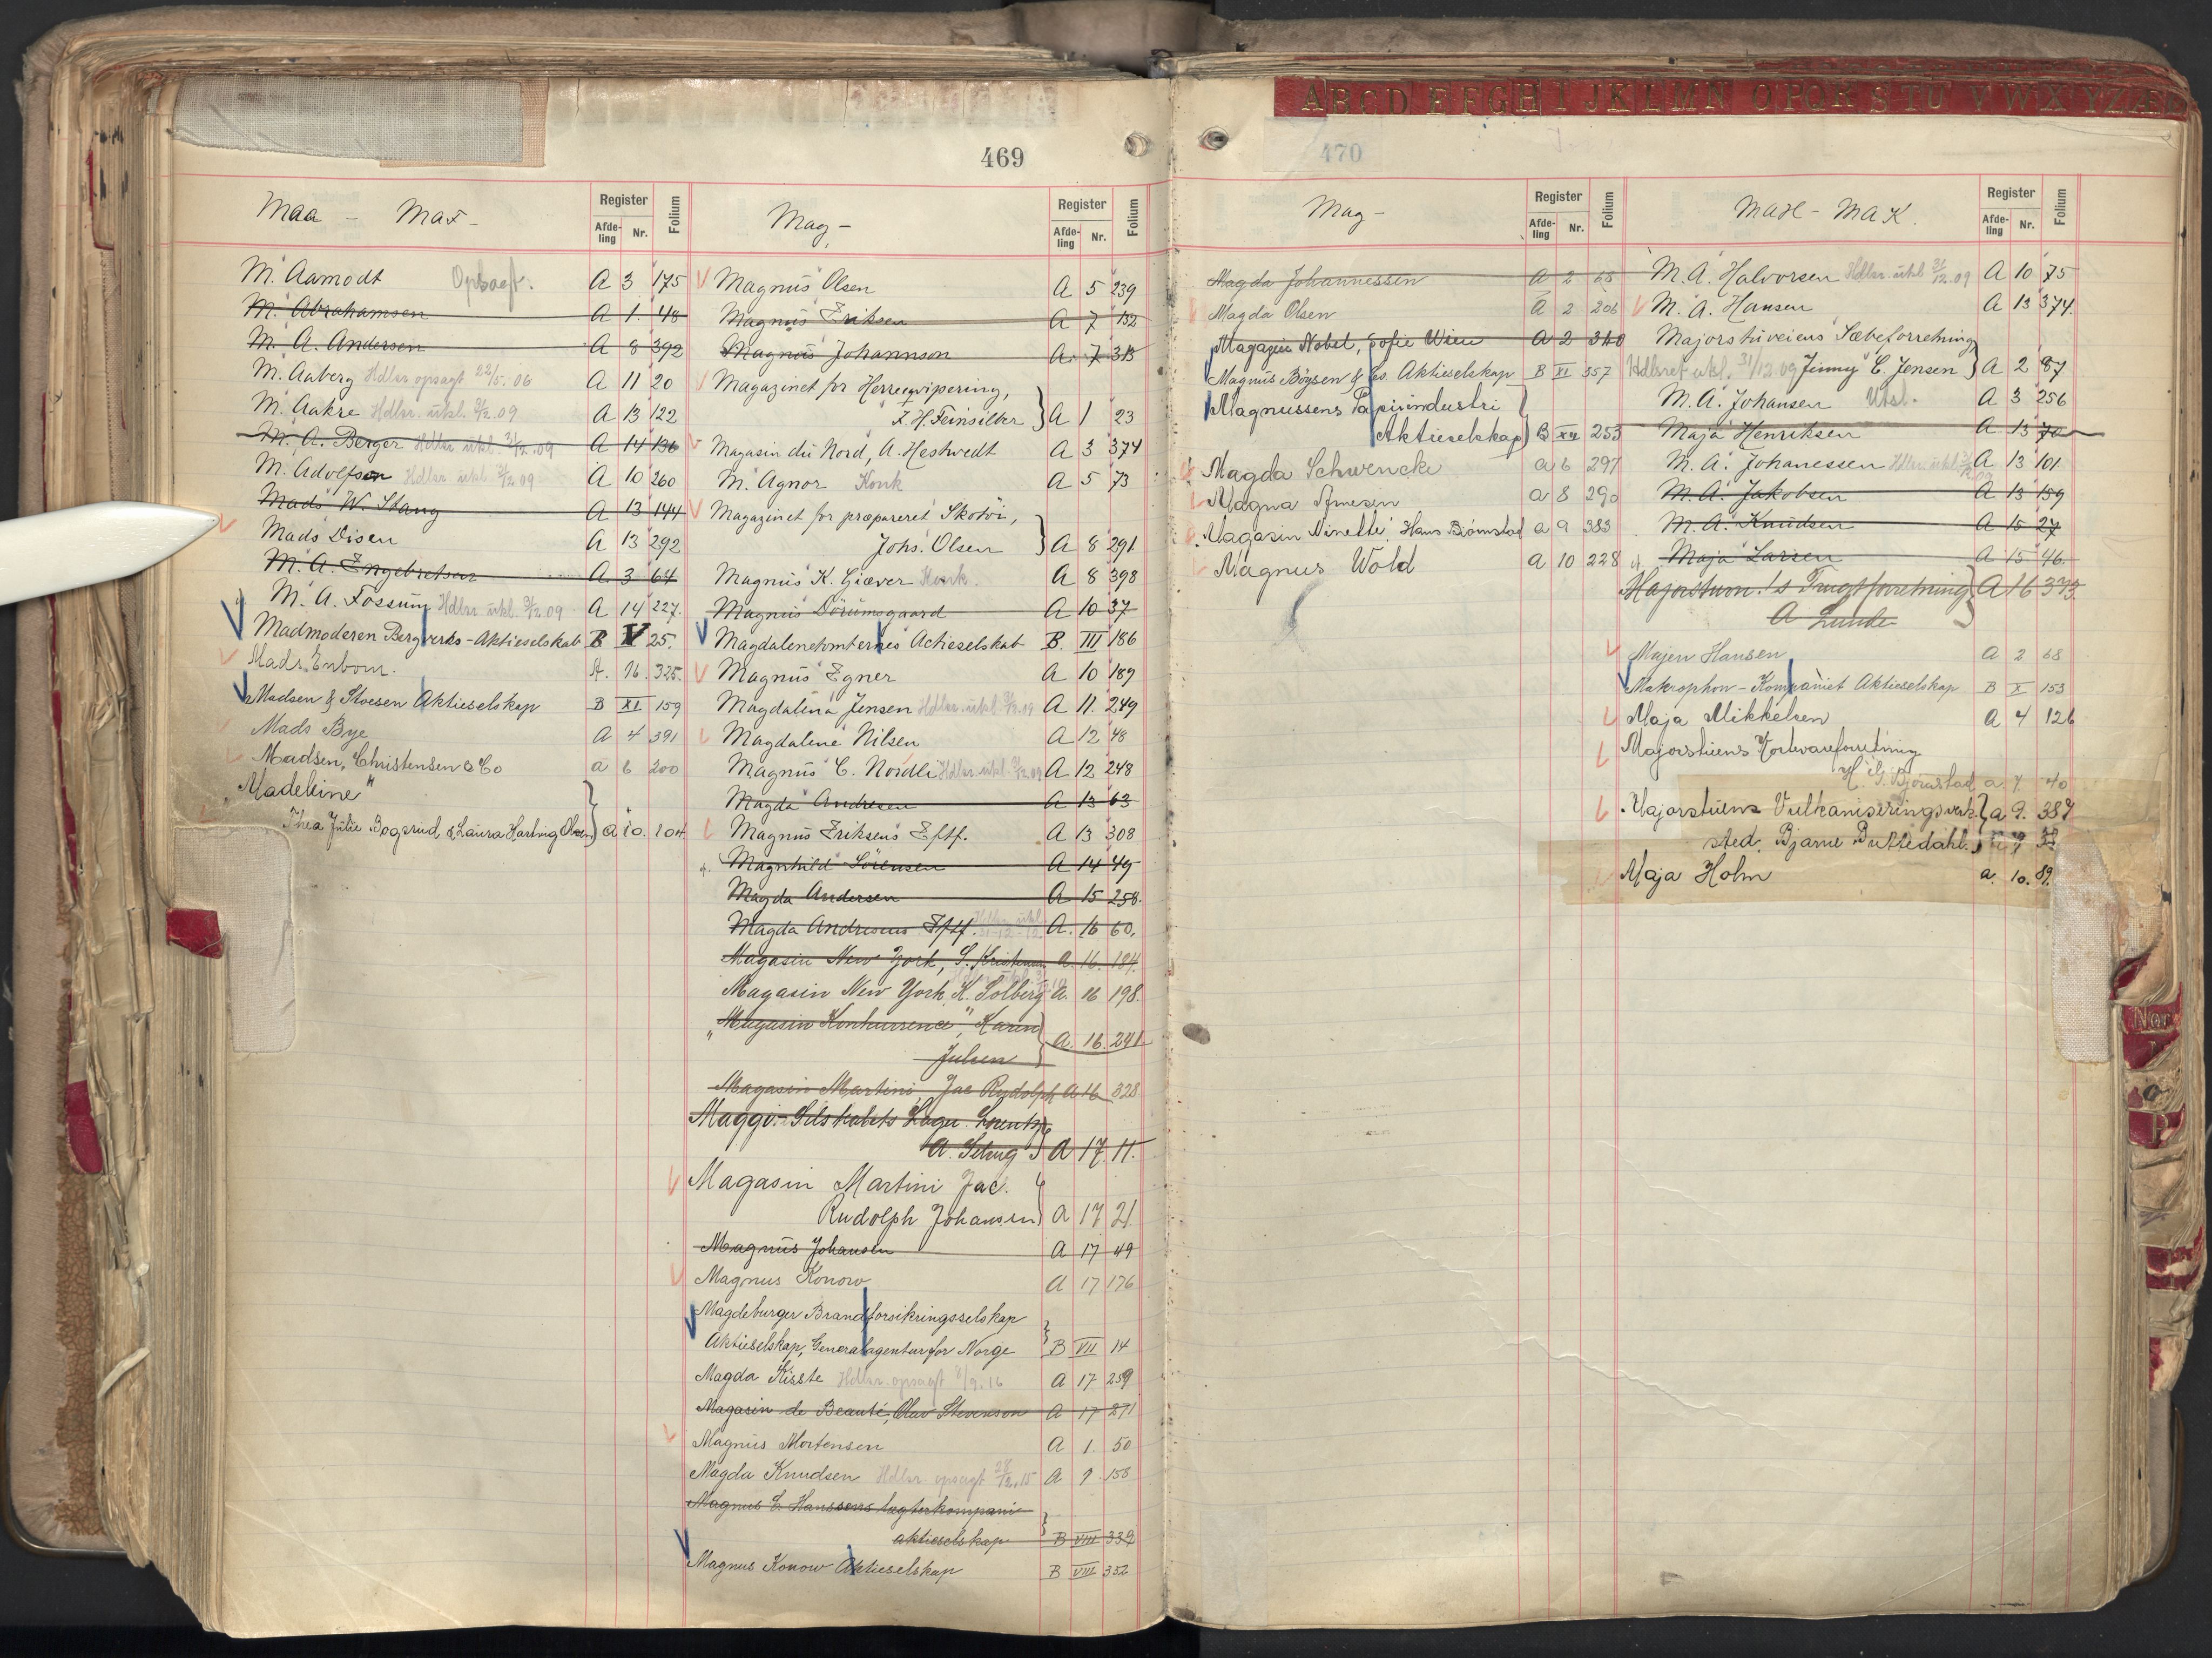 469
Maa - Maf -
Register
Afde-ling Nr. Folium
M. Aamodt Opsagt. A 3 175
M. Abrahamsen A 1 48
M. A. Andersen A 8 392
M. Aaberg Hdlsr opsagt 22/5.06 A 11 20
M. Aakre Hdlsr. utkl. 31/12.09 A 13 122
M. A. Berger Hdlsr. utkl. 31/12.09 A 14 136
M. Adolfsen Hdlsr. utkl 31/12.09 A 10 260
Mads W. Stang A 13 144
Mads Disen A 13 292
M. A. Engebretsen A 3 64
M. A. Fossum Hdlsr. utkl. 31/12.09 A 14 227.
Madmoderen Bergverks-Aktieselskab B V 25.
Mads Enbom. A. 16. 325.
Madsen & Stoesen Aktieselskap B XI 159
Mads Bye A 4 391
Madsen, Christensen & Co a 6 200
"Madeleine"
Thea Julie Bogerud & Laura Hartvig Olsen a 10. 104
Mag -
Register
Afde-ling Nr. Folium
Magnus Olsen A 5 239
Magnus Eriksen A 7 132
Magnus Johannson A. 7 313
Magazinet for Herreekvipering,
F. H. Feinsilber A 1 23
Magasin du Nord, A. Hestvedt A 3 374
M. Agnor Konk A 5 73
Magazinet for præpareret Skotöi,
Johs. Olsen A 8 291
Magnus K. Giæver Konk. A 8 398
Magnus Dörumsgaard A 10 37
Magdalenetomternes Actieselskab B. III 186
Magnus Egner A 10 189
Magdalena Jensen Hdlsr. utkl. 31/12.09 A 11. 249
Magdalene Nilsen A 12 48
Magnus C. Nordli Hdlsr. utkl. 31/12.09 A 12 248
Magda Andresen A 13 63
Magnus Eriksens Eftf. A 13 308
Magnhild Sörensen A 14 49
Magda Andersen A 15 258.
Magda Andresens Eftf. A. 16 60.
Magasin New York, S. Kristensen A. 16. 184.
Magasin New York, K. Solberg A. 16 198.
"Magasin Konkurrence", Karen
Julsen A. 16. 241
Magasin Martini, Jac Rudolph A 16 328
Maggi-Selskabets Lager Lorentz
A 17 11.
Magasin Martini Jac.
Rudolph Johansen A 17 21
Magnus Johansen A 17 49
Magnus Konow A 17 176
Magdeburger Brandforsikringsselskap
Aktieselskap, Generalagentur for Norge B VII 14
Magda Kisste Hdlsr. opsagt 6/9.16 A 17 259
Magasin de Beauté, Olav Stevenson A 17 271
Magnus Mortensen A 1. 50
Magda Knudsen Hdlsr. opsagt 28/12.15 A 1 158
Magnus E. Hanssens lægterkompani
aktieselskap B VIII 339
Magnus Konow Aktieselskap B VIII 352
A B C D E F G H I J K L M N O P Q R S T U V W X Y Z Æ
470
Mag -
Register
Afde-ling Nr. Folium
Magda Johannessen A 2 65
Magda Olsen A 2 206
Magazin Nobel, Sofie Wien A 2 340
Magnus Böysen & Co. Aktieselskap B XI 357
Magnussens Papirindustri
Aktieselskap B XII 253
Magda Schwencke a 6 297
Magna Arnesen a 8 290
Magasin Ninette, Hans Bjørnstad a 9 383
Magnus Wold a 10 228
MaH - MaK.
Register
Afde-ling Nr. Folium
M. A. Halvorsen Hdlsr. utkl 31/12.09 A 10 75
M. A. Hansen A 13 374.
Majorstuveiens Sæbeforretning
Hdlsret utkl. 31/12.09 Jenny C. Jensen A 2 87
M. A. Johansen Utsl. A 3 256
Maja Henriksen A 13 70
M. A. Johanessen Hdlsr. utkl. A 13 101
M. A. Jakobsen A 13 159
M. A. Knudsen A 15 27
Maja Larsen A 15 46.
Majorstuen's Frugtforretning A 16 373
A Lunde
Majen Hansen A 2 68
Makrophon-Kompaniet Aktieselskap B X 153
Maja Mikkelsen A 4 126
Majorstuens Kortevareforretning
H. G. Bjørnstad a. 7 40
Majorstuens Vulkaniseringsverk- a 9. 387
sted, Bjarne Buttedahl.
Maja Holm a. 10. 89.
Nor
P